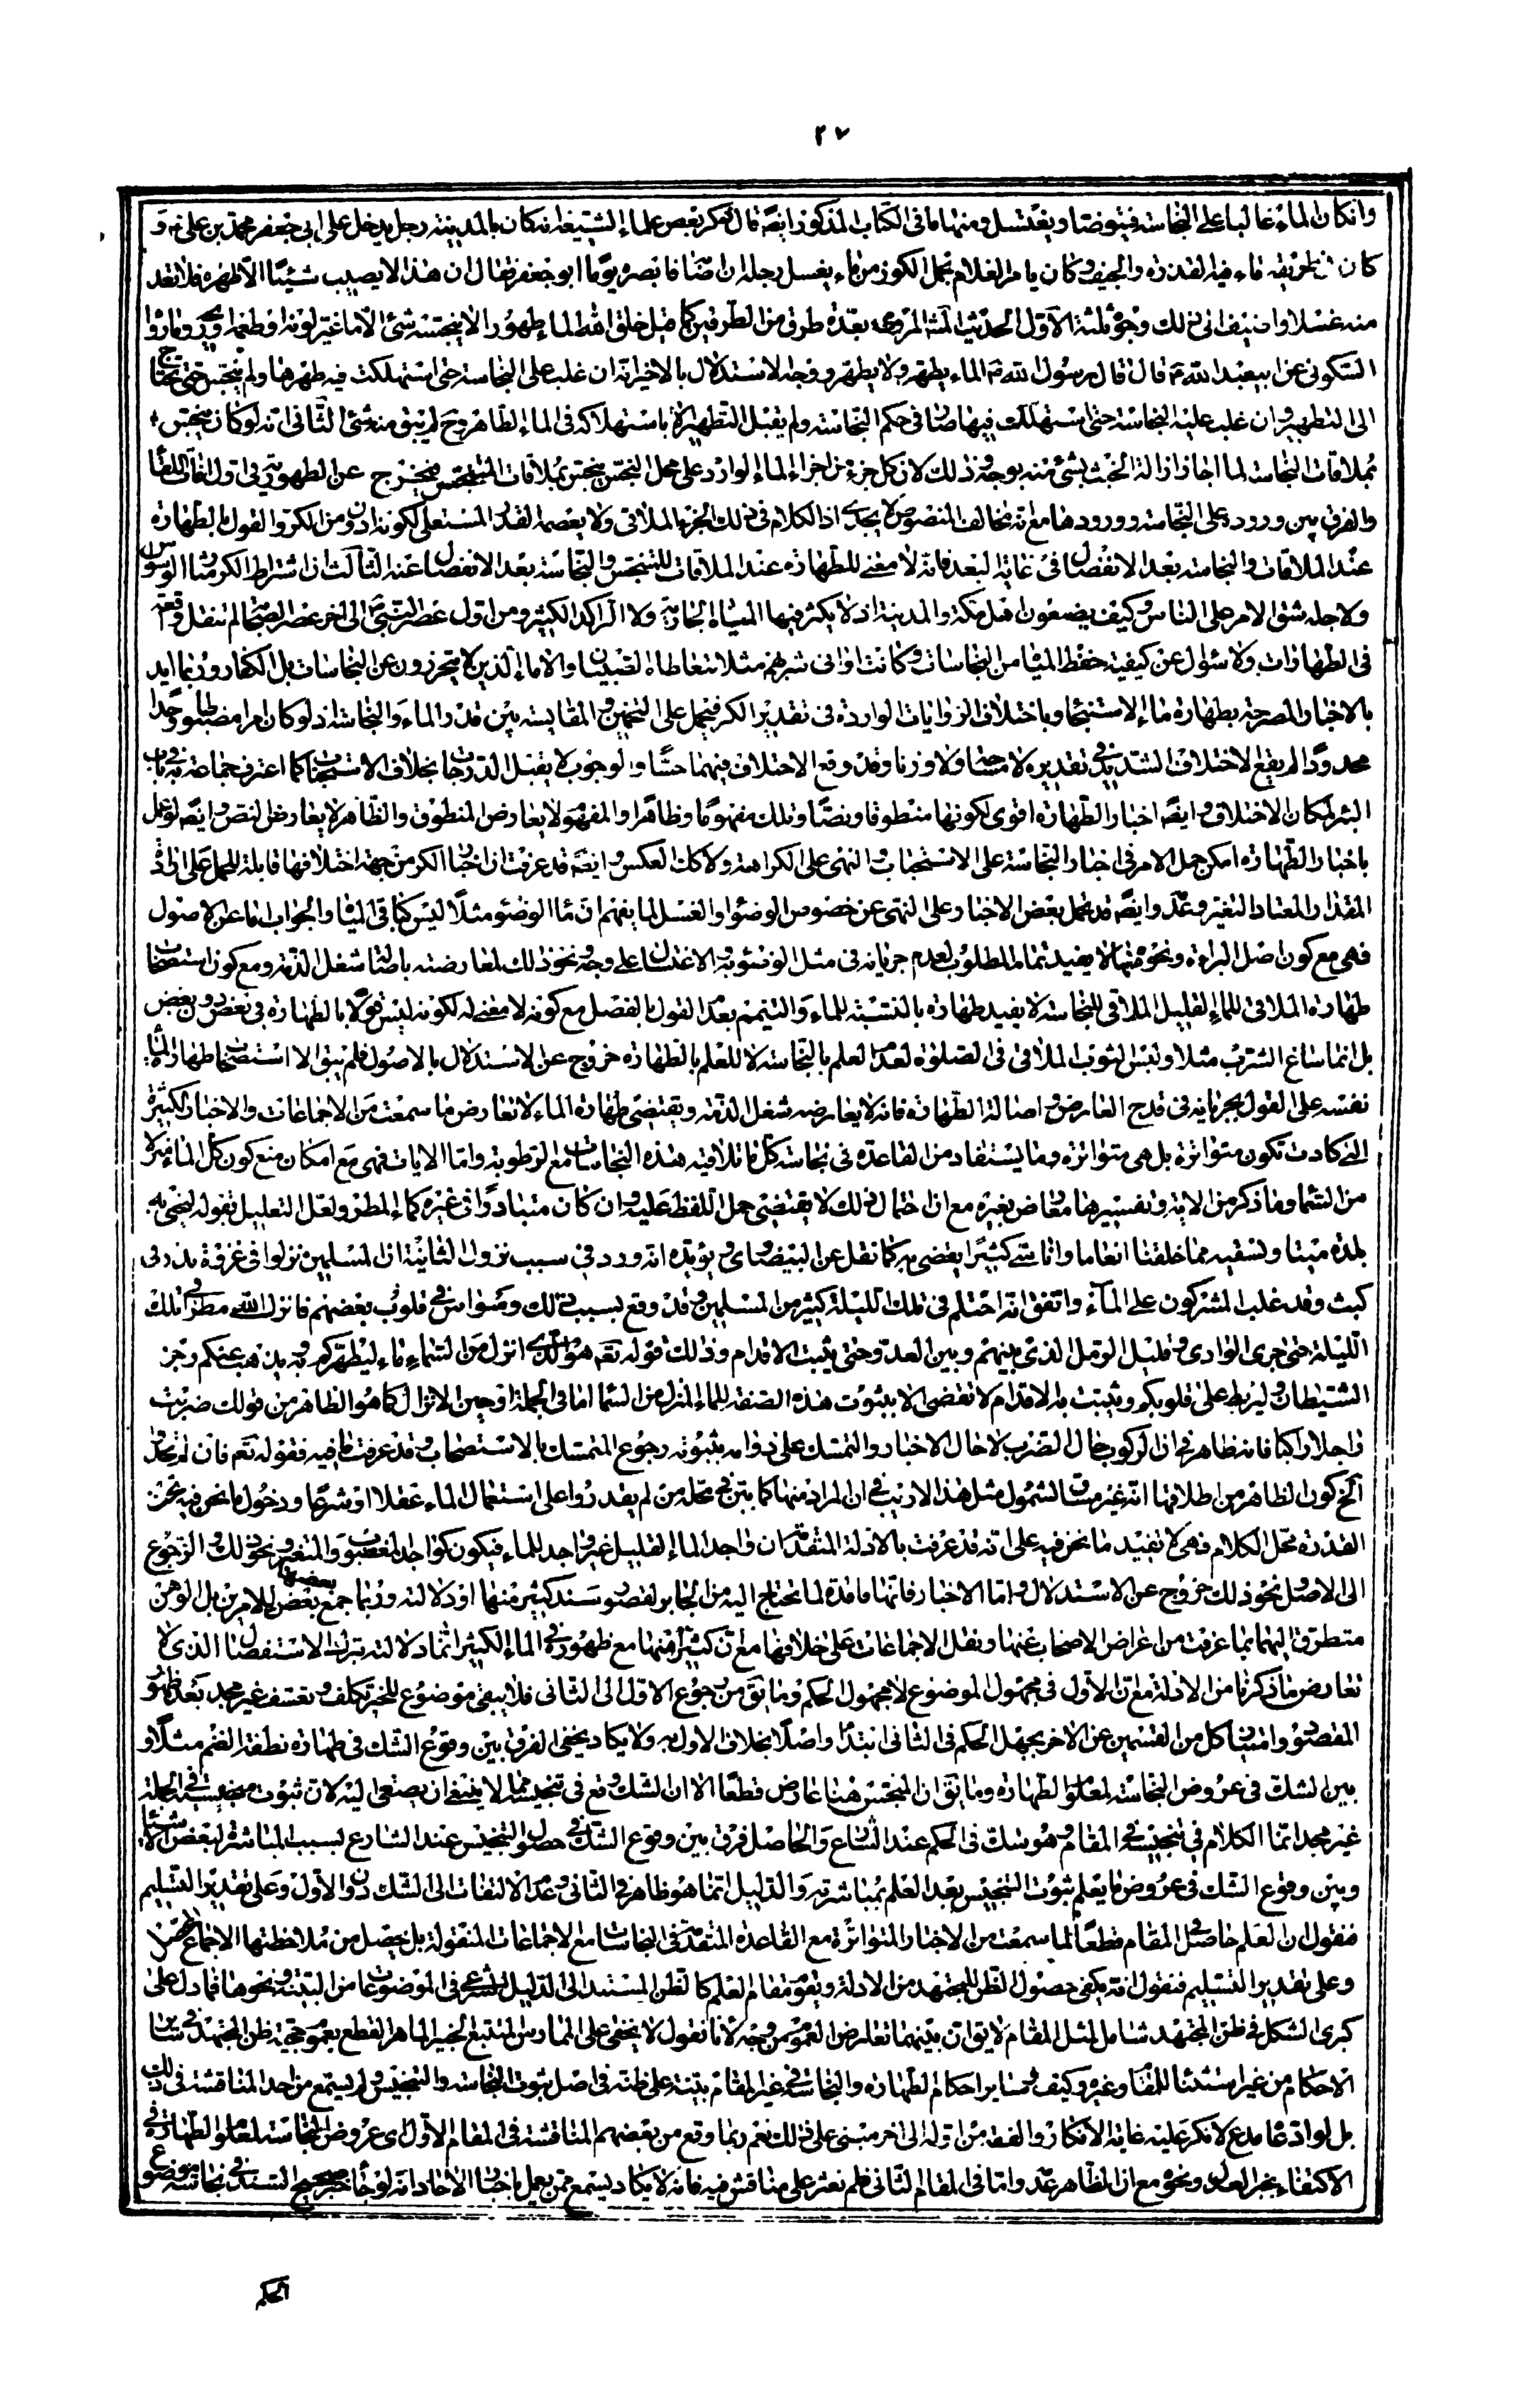 ٢٧
وانكان الماء غالبا على النجاسة فيتوضا ويغتسل ومنها ما فى الكتاب المذكور ايضا قال ذكر بعض علماء الشيعة انه كان بالمدينة رجل يدخل على ابى جعفر محمد بن على ع و
كان فى طريقه ماء فيه القذرة والجيف وكان يامر الغلام يحمل الكوز من ماء يغسل رجله ان اصابه فابصره يوما ابو جعفر فقال ان هذا لا يصيب شيئا الا طهره فلا تعد
منه غسلا واضيف الى ذلك وجوه ثلثة الاول الحديث المروى بعدة طرق من الطرفين كما قيل خلق الله الماء طهورا لا ينجسه شئ الا ما غير لونه او طعمه او ريحه وما رواه
السكونى عن ابيعبد الله ع قال قال رسول الله ص الماء يطهر ولا يطهر ووجه الاستدلال بالاخير انه ان غلب على النجاسة حتى استهلكت فيه طهرها ولم ينجس حتى يحتاج
الى التطهير وان غلب عليه النجاسة حتى استهلك فيها صار فى حكم النجاسة ولم يقبل التطهير الا باستهلاكه فى الماء الطاهر وح لم يبق منه شئ الثانى انه لو كان ينجس
بملاقات النجاسة لما جاز ازالة الخبث بشئ منه بوجه وذلك لان كل جزء من اجزاء الماء الوارد على محل النجس ينجس بملاقات المتنجس فيخرج عن الطهورية فى اول آنات اللقاء
والفرق بين وروده على النجاسة وورودها مع انه مخالف النصوص لا يجدى اذ الكلام فى ذلك الجزء الملاقى ولا يعصمه القدر المستعلى لكونه ادون من الكر والقول بالطهارة
عند الملاقات والنجاسة بعد الانفصال فى غاية البعد فانه لا معنى للطهارة عند الملاقات للمتنجس والنجاسة بعد الانفصال عنه الثالث ان اشتراط الكر مثار الوسواس
ولاجله شق الامر على الناس وكيف يصنعون اهل مكة والمدينة اذ لا يكثر فيها المياه الجارية ولا الراكد الكثير ومن اول عصر النبى ص الى آخر عصر الصحابة لم تنقل واقعة
فى الطهارات ولا سؤال عن كيفية حفظ المياه من النجاسات وكانت اوانى شربهم مثلا تتعاطاه الصبيان والاماء الذين لا يتحرزون عن النجاسات بل الكفار وربما ايد
بالاخبار المصرحة بطهارة ماء الاستنجاء وباختلاف الروايات الواردة فى تقدير الكر فيحمل على التخمين والمقايسة بين قدر الماء والنجاسة اذ لو كان امرا مضبوطا وحدا
محدودا لم يقع الاختلاف الشديد فى تقديره لا مساحة ولا وزنا وقد وقع الاختلاف فيهما حسا والوجوب لا يقبل الدرجات بخلاف الاستحباب كما اعترف جماعة به فى باب
البئر لمكان الاختلاف وايضا اخبار الطهارة اقوى لكونها منطوقا ونصا وتلك مفهوما وظاهرا والمفهوم لا يعارض المنطوق والظاهر لا يعارض النص وايضا لو عمل
باخبار الطهارة امكن حمل الامر فى اخبار النجاسة على الاستحباب والنهى على الكراهة ولا كك العكس وايضا قد عرفت ان اخبار الكر من جهة اختلافها قابلة للحمل على ان ذ
المقدار المعتاد للتغير وعدمه وايضا قد يحمل بعض الاخبار وعلى النهى عن خصوص الوضوء والغسل لما يفهم ان ماء الوضوء مثلا ليس كباقى المياه والجواب اما عن الاصول
فهى مع كون اصل البراءة ونحوه منها لا يفيد تمام المطلوب لعدم جريانه فى مثل الوضوء به والاغتسال على وجه ونحو ذلك لمعارضته باصالة شغل الذمة ومع كون استصحاب
طهارة الملاقى للماء القليل الملاقى للنجاسة لا يفيد طهارة بالنسبة للماء والتيمم بعد القول بالفصل مع كونه لا معنى له لكونه ليس قولا بالطهارة فى بعض دون بعض
بل انما ساغ الشرب مثلا ولبس الثوب الملاقى فى الصلوة لعدم العلم بالنجاسة لا للعلم بالطهارة خروج عن الاستدلال بالاصول فلم يبق الا استصحاب طهارة الماء
نفسه على القول بجريانه فى قدح العارض واصالة الطهارة فانه لا يعارضه شغل الذمة ويقتضى طهارة الماء لا تعارض ما سمعت من الاجماعات والاخبار الكثيرة
التى كادت تكون متواترة بل هى متواترة وما يستفاد من القاعدة فى نجاسة كل ما تلاقيه هذه النجاسات مع الرطوبة واما الايات فهى مع امكان منع كون كل الماء منزلا
من السماء وما ذكر من الاية وتفسيرها معارض بغيره مع ان احتمال ذلك لا يقتضى حمل اللفظ عليه وان كان متبادرا فى غيره كماء المطر ولعل التعليل بقوله لنحيى به
بلدة ميتا ونسقيه مما خلقنا انعاما واناسى كثيرا يقضى به كما نقل عن البيضاوى ويؤيده انه ورد فى سبب نزول الثانية ان المسلمين نزلوا فى غزوة بدر فى
كبث وقد غلب المشركون على الماء واتفق انه احتلم فى تلك الليلة كثير من المسلمين وقد وقع بسبب ذلك وسواس فى قلوب بعضهم فانزل الله مطرا فى تلك
الليلة حتى جرى الوادى وقليل الرمل الذى بينهم وبين العدو حتى يثبت الاقدام وذلك قوله تعالى هو الذى انزل من السماء ماء ليطهركم به ويذهب عنكم رجز
الشيطان وليربط على قلوبكم ويثبت به الاقدام لا تقضى الا بثبوت هذه الصفة للماء المنزل من السماء اما فى الجملة او حين الانزال كما هو الظاهر من قولك ضربت
راجلا راكبا فانه ظاهر فى ان الركوب حال الضرب لا حال الاخبار والتمسك على دوامه بثبوته رجوع المتمسك بالاستصحاب وقد عرفت ما فيه فقوله تعالى فان لم تجدوا
الخ كون الظاهر من اطلاقها انه غير مساق لشمول مثل هذا لا ريب فى ان المراد منها كما بين فى محله من لم يقدروا على استعمال الماء عقلا او شرعا ودخول ما نحن فيه تحت
القدرة محل الكلام فهى لا تفيد ما نحن فيه على انه قد عرفت بالادلة المتقدمة ان واجد الماء القليل غير واجد للماء فيكون كواجد المغصوب والمتغير ونحو ذلك والرجوع
الى الاصل ونحو ذلك خروج عن الاستدلال واما الاخبار فانها فاقدة لما تحتاج اليه من الجابر لقصور سند كثير منها او دلالته وربما جمع بعضها للامرين بل الوهن
متطرق اليها بما عرفت من اعراض الاصحاب عنها ونقل الاجماعات على خلافها مع ان كثيرا منها مع ظهوره فى الماء الكثير انما دلالته بترك الاستفصال الذى لا
تعارض ما ذكرنا من الادلة مع ان الاول فى مجهول الموضوع لا مجهول الحكم وما يق من رجوع الاول الى الثانى فلا يبقى موضوع للخبر تكلف وتعسف غير مجد بعد ظهور
المقصود وامتياز كل من القسمين عن الاخر بجهل الحكم فى الثانى ابتداء واصلا بخلاف الاول ولا يكاد يخفى الفرق بين وقوع الشك فى طهارة نطفة الغنم مثلا و
بين الشك فى عروض النجاسة لمعلوم الطهارة وما يق ان المنجس هنا عارض قطعا الا ان الشك وقع فى تنجيسه مما لا ينبغى ان يصغى اليه لان ثبوت منجسيته فى الجملة
غير مجد انما الكلام فى تنجيسه فى المقام وهو شك فى الحكم عند الشارع والحاصل فرق بين وقوع الشك فى حصول التنجيس عند الشارع بسبب المباشرة لبعض الاشياء
وبين وقوع الشك فى عروض ما يعلم ثبوت التنجيس بعد العلم بمباشرته والدليل انما هو ظاهر فى الثانى وعدم الالتفات الى الشك دون الاول وعلى تقدير التسليم
فنقول ان العلم حاصل فى المقام قطعا لما سمعت من الاخبار المتواترة مع القاعدة المتقدمة فى النجاسات مع الاجماعات المنقولة بل يحصل من ملاحظتها الاجماع المحصل
وعلى تقدير التسليم فنقول انه يكفى حصول الظن للمجتهد من الادلة ويقوم مقام العلم كالظن المستند الى الدليل الشرعى فى الموضوعات من البينة ونحوها فما دل على
كبرى الشكل فى ظن المجتهد شامل لمثل المقام لا يق ان بينهما تعارض العموم من وجه لانا نقول لا يخفى على الممارس المتتبع الخبير الماهر القطع بعموم حجية ظن المجتهد فى سائر
الاحكام من غير استثناء للمقام وغيره وكيف وسائر احكام الطهارة والنجاسة فى غير المقام مبتنية على ظنه فى اصل ثبوت النجاسة والتنجيس ولم يسمع من احد المناقشة فى ذلك
بل لو ادعا مدع لانكر عليه غاية الانكار والفقه من اوله الى اخره مبنى على ذلك نعم ربما وقع من بعضهم المناقشة فى المقام الاول اى عروض النجاسة لمعلوم الطهارة فى
الاكتفاء بخبر العدل ونحوه مع ان الظاهر عدمه واما فى المقام الثانى فلم نعثر على مناقش فيه فانه لا يكاد يسمع ممن يعمل باخبار الاحاد انه لو جاء خبر صحيح السند فى نجاسة موضوع
الحكم